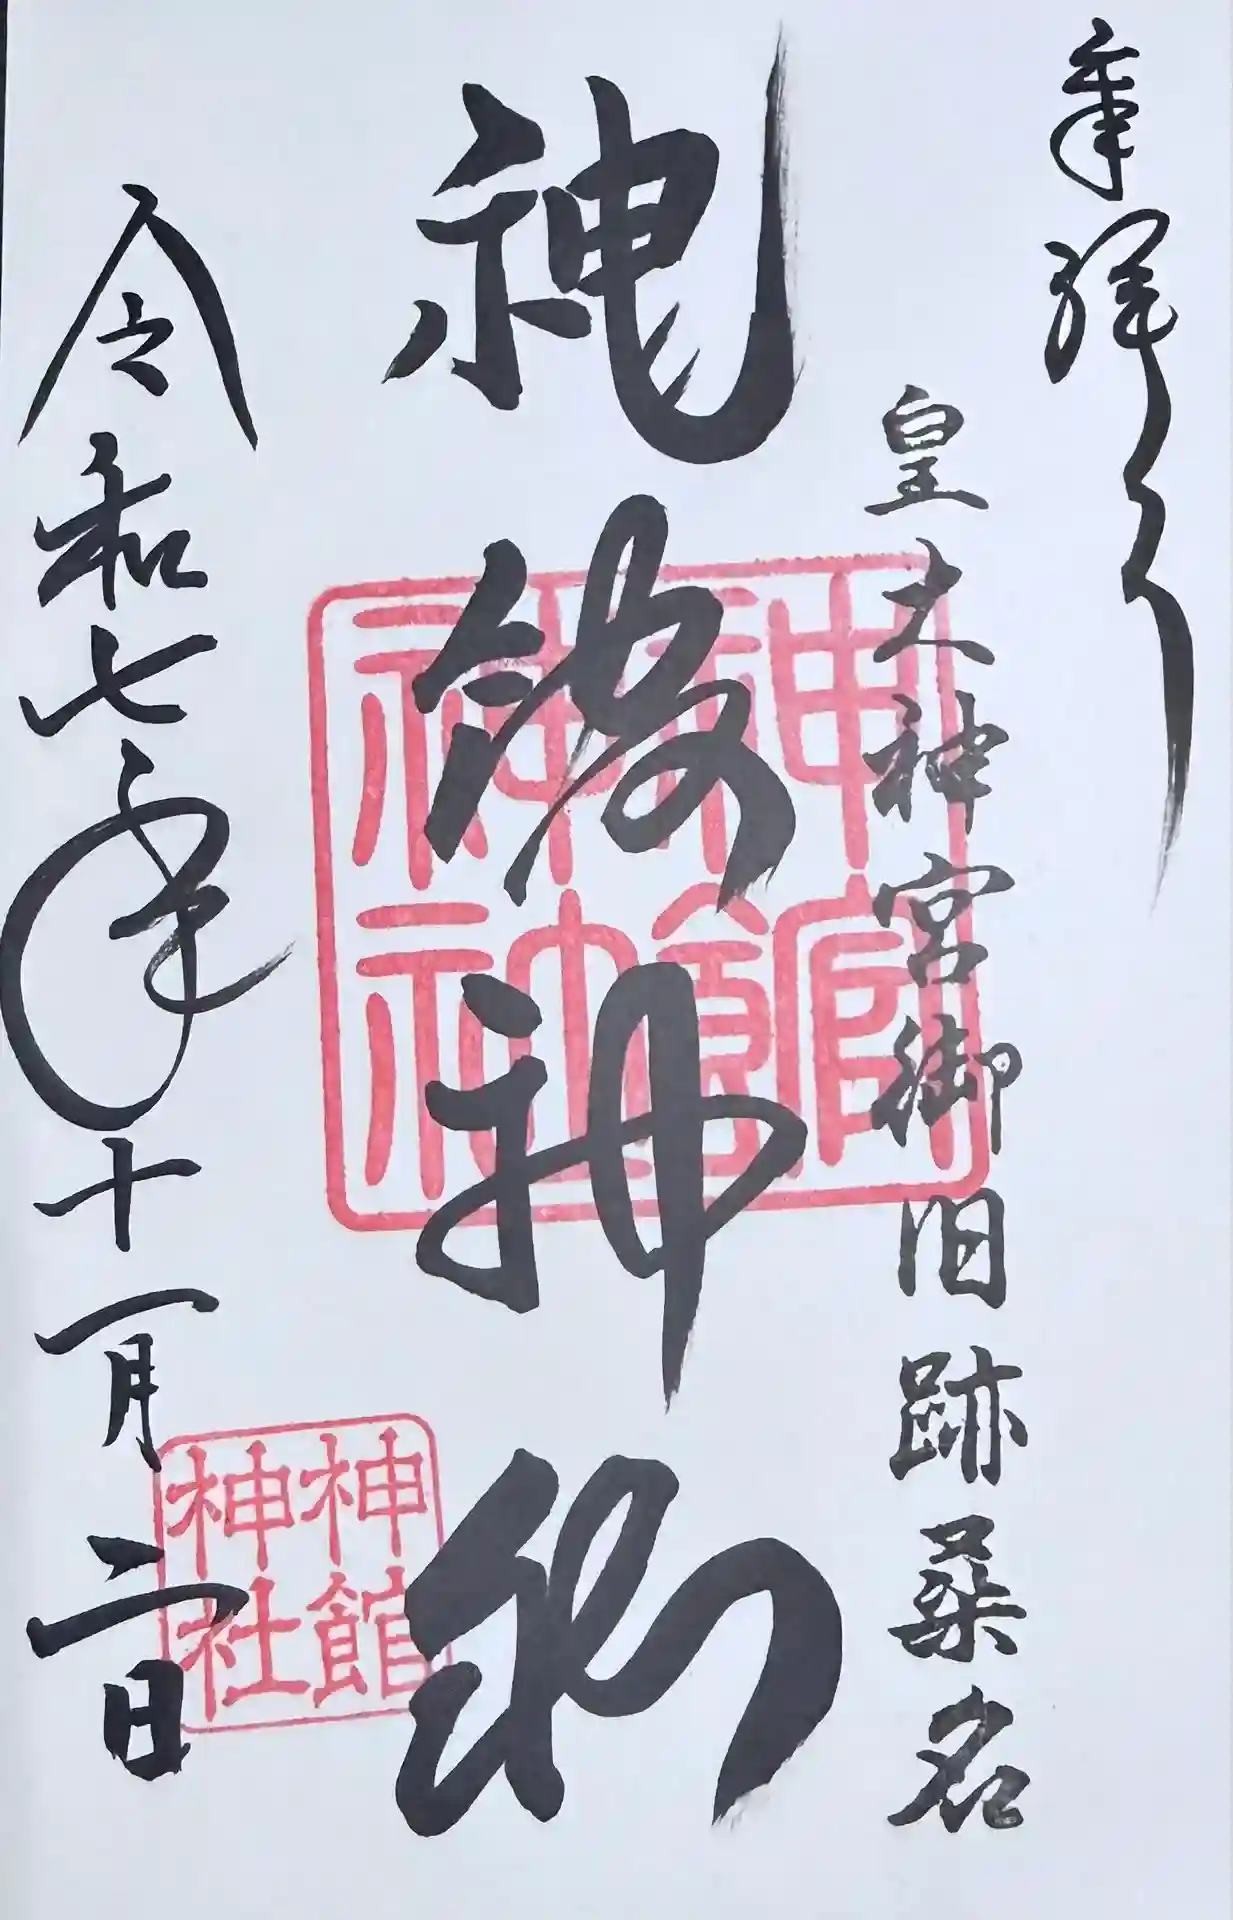 奉拝
皇大神宮御旧跡桑名
神館神社
神館神社
令和七年十一月二日
神館神社